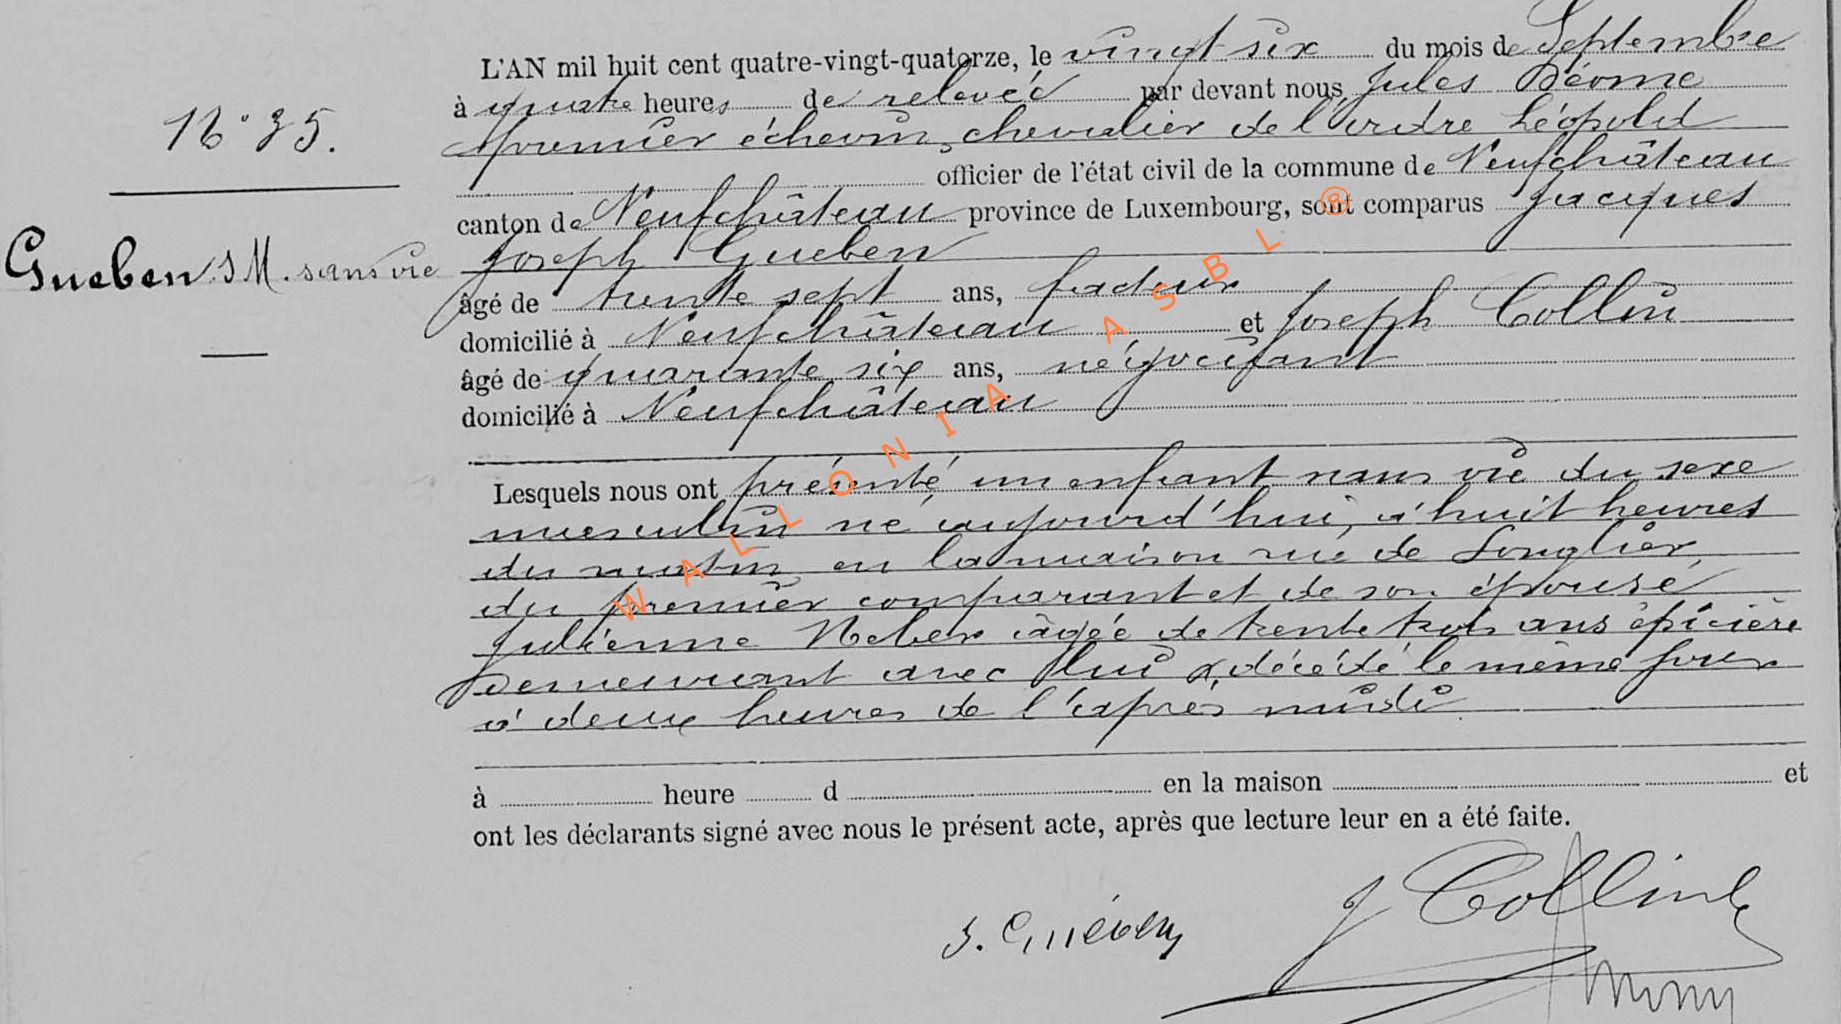 L'AN mil huit cent quatre-vingt-quatorze, le vingt six du mois de Septembre
à quatre heures de relevée par devant nous, Jules Déome
premier échevin, chevalier de l'ordre Léopold
officier de l'état civil de la commune de Neufchâteau
canton de Neufchâteau province de Luxembourg, sont comparus Jacques
Joseph Gueben
âgé de trente sept ans, facteur
domicilié à Neufchâteau et Joseph Collin
âgé de quarante six ans, négociant
domicilié à Neufchâteau
35.
Gueben. S M. sans vie
Lesquels nous ont présenté un enfant sans vie du sexe
masculin né aujourd'hui, à huit heures
du matin en la maison rue de Longlier
du premier comparant et de son épouse
Julienne âgée de trente trois ans épicière
demeurant avec lui & décédé le même jour
à deux heures de l'après midi
à heure d en la maison et
ont les déclarants signé avec nous le présent acte, après que lecture leur en a été faite.
J. Guében
J Collin
WALLONIA ASBL ®